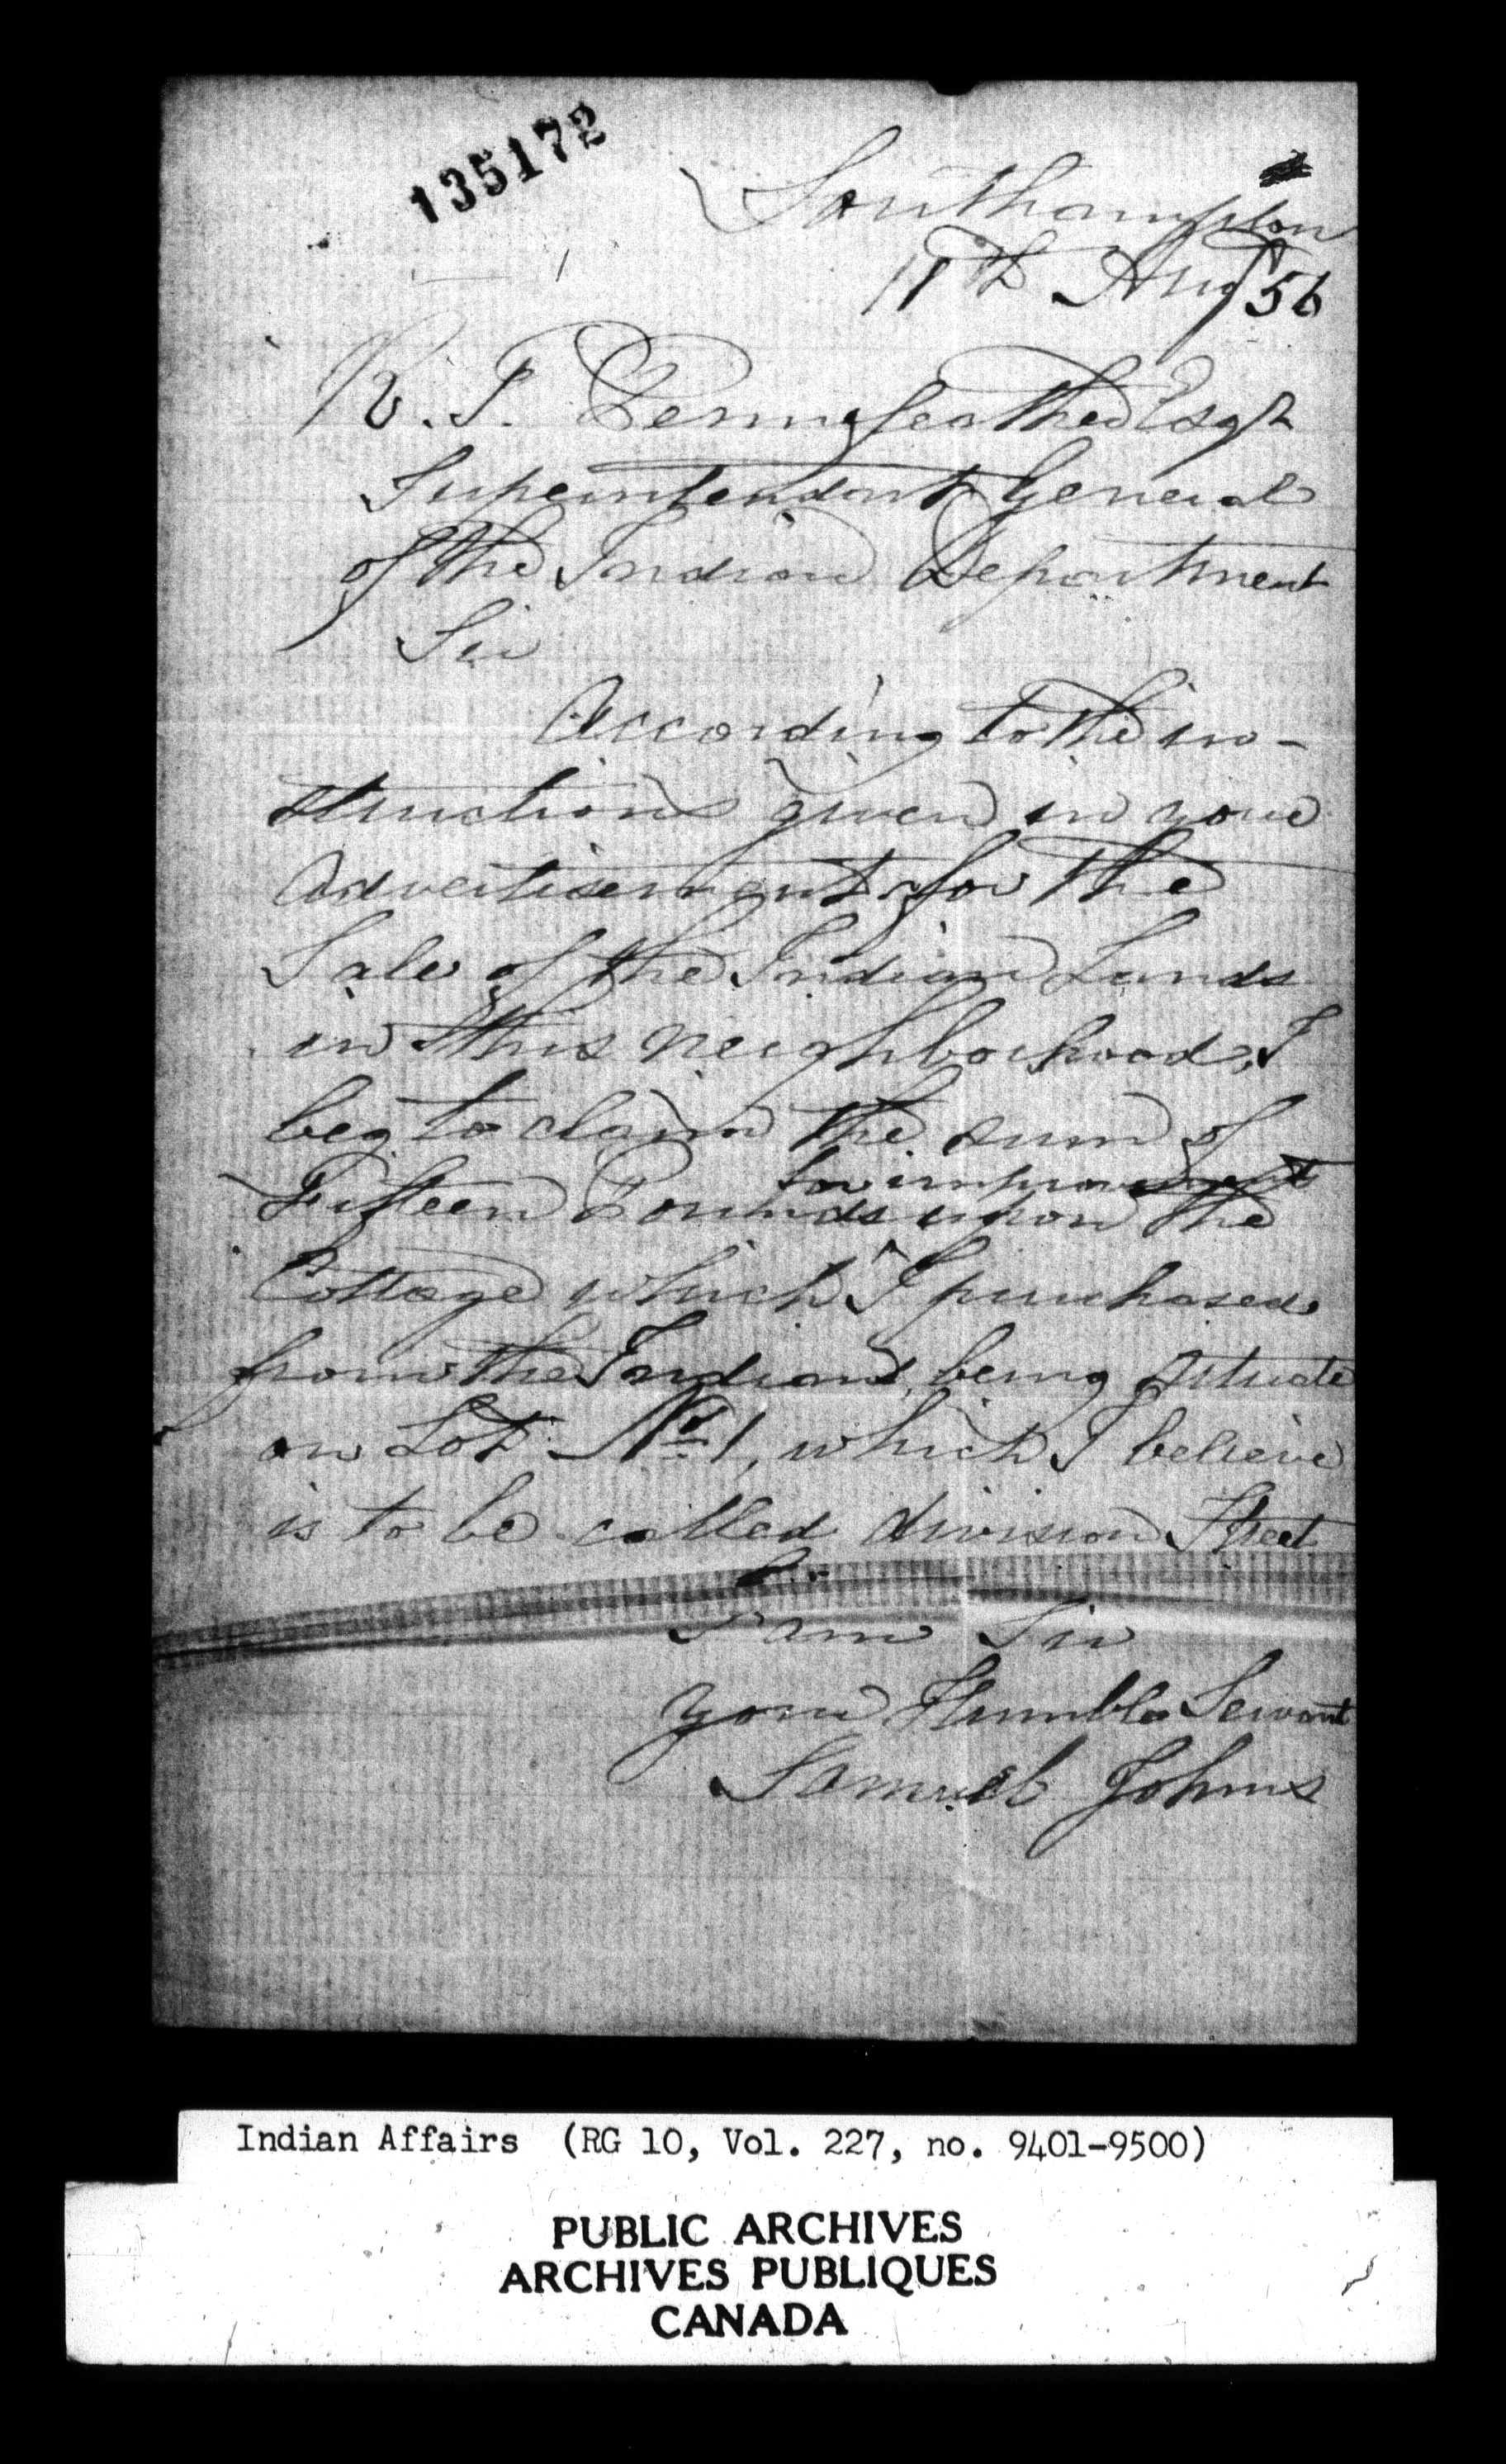 135172
Southampton
11th Augt 56
R. T. Pennefeather Esqr
Superintendant General
of the Indian Department
Sir
According to the in-
structions given in your
Advertisement for the
Sale of the Indian Lands
in this neighborhood, I
beg to claim the sum of
for improvement
Fifteen Pounds upon the
Cottage which I purchased
from the Indians, being situate
on Lot No 1, which I believe
is to be called division Street
I am Sir
your Humble Servant
Samuel Johns
Indian Affairs (RG 10, Vol. 227, no. 9401-9500)
PUBLIC ARCHIVES
ARCHIVES PUBLIQUES
CANADA